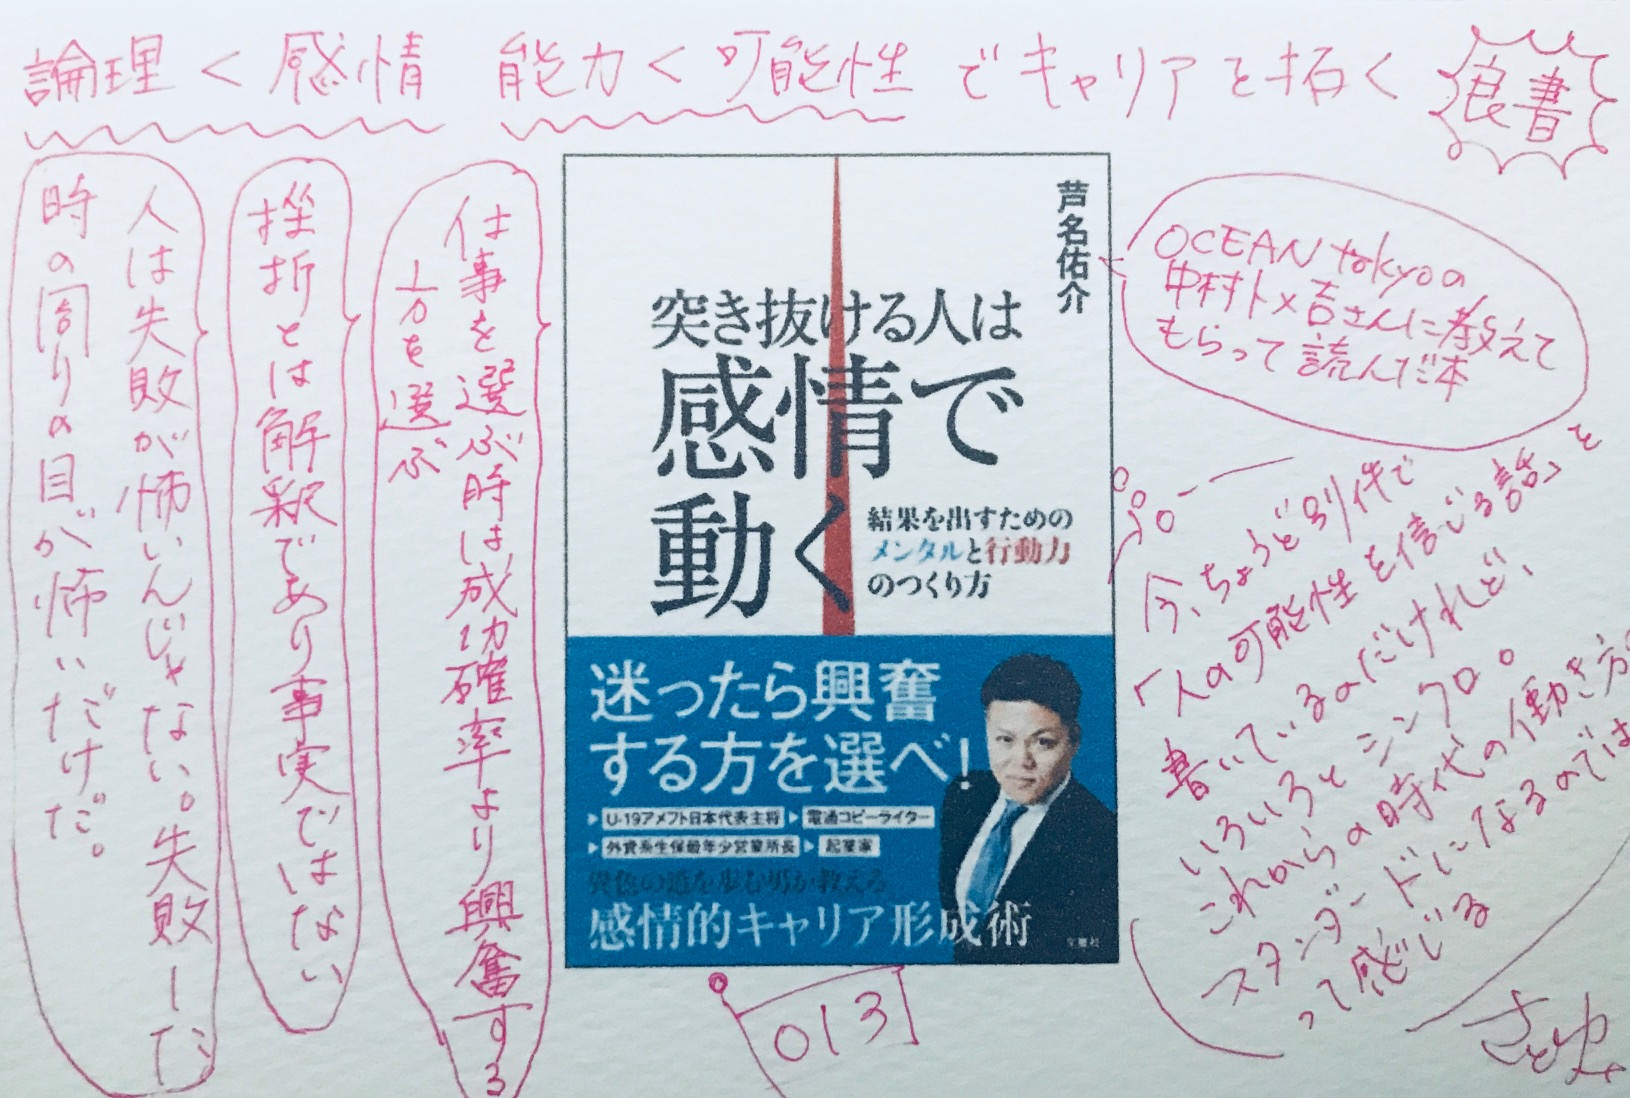 論理<感情 能力<可能性 でキャリアを拓く
良書
芦名佑介
突き抜ける人は
感情で
動く
結果を出すための
メンタルと行動力
のつくり方
迷ったら興奮
する方を選べ!
U-19アメフト日本代表主将
電通コピーライター
外資系生保最年少営業所長
起業家
異色の道を歩む男が教える
感情的キャリア形成術
宝島社
OCEAN tokyoの
中村トメ吉さんに教えて
もらって読んだ本
仕事を選ぶ時は成功確率より興奮する
方を選ぶ
挫折とは解釈であり事実ではない
人は失敗が怖いんじゃない。失敗した
時の周りの目が怖いだけだ。
今、ちょうど別件で
「人の可能性を信じる話」を
書いているのだけれど、
いろいろとシンクロ。
これからの時代の働き方の
スタンダードになるのでは
って感じる
さとゆみ
013